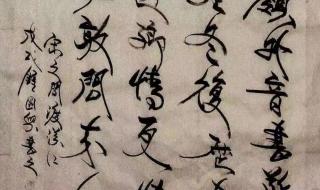 嶺外音書
冬復歷
鄉情更
敢問來人
宋之問渡漢江
戊戌